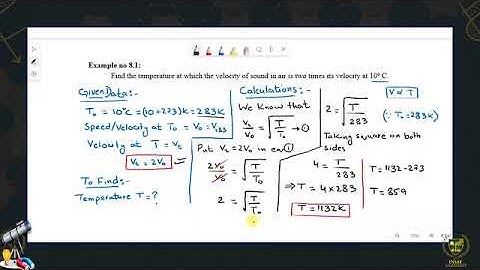 Example no 8.1:
Find the temperature at which the velocity of sound in air is two times its velocity at 10° C.
Given Data:-
T₀ = 10°C = (10+273)K = 283K
Speed/Velocity at T₀ = V₀ = V₂₈₃
Velocity at T = Vₜ
Vₜ = 2V₀
To Find:-
Temperature T = ?
Calculations:-
We Know that
Vₜ/V₀ = √(T/T₀) → ①
Put Vₜ = 2V₀ in eq ①
2V₀/V₀ = √(T/T₀)
2 = √(T/T₀)
V ∝ T
2 = √(T/283)
(∵ T₀ = 283K)
Taking square on both
sides
4 = T/283
⇒ T = 4 × 283
T = 1132K
T = 1132-273
T = 859